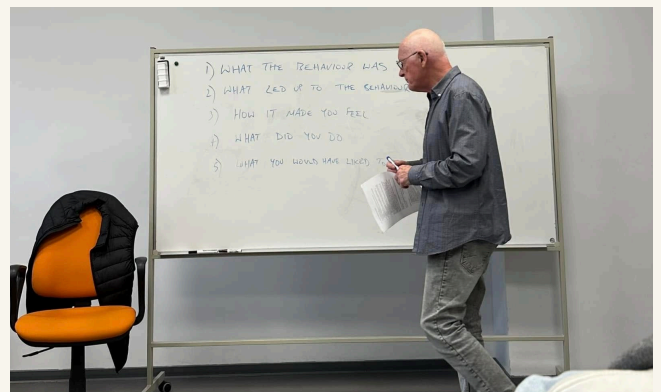 1) WHAT THE BEHAVIOUR WAS
2) WHAT LED UP TO THE BEHAVIOUR
3) HOW IT MADE YOU FEEL
4) WHAT DID YOU DO
5) WHAT YOU WOULD HAVE LIKED